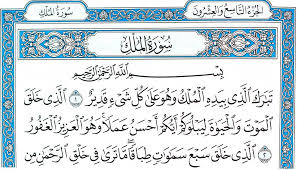 الجزء التاسع والعشرون
سورة الملك
سُورَةُ المُلْكِ
بِسْمِ ٱللَّهِ ٱلرَّحْمَٰنِ ٱلرَّحِيمِ
تَبَٰرَكَ ٱلَّذِى بِيَدِهِ ٱلْمُلْكُ وَهُوَ عَلَىٰ كُلِّ شَىْءٍ قَدِيرٌ ١ ٱلَّذِى خَلَقَ
ٱلْمَوْتَ وَٱلْحَيَوٰةَ لِيَبْلُوَكُمْ أَيُّكُمْ أَحْسَنُ عَمَلًا وَهُوَ ٱلْعَزِيزُ ٱلْغَفُورُ ٢
ٱلَّذِى خَلَقَ سَبْعَ سَمَٰوَٰتٍ طِبَاقًا مَّا تَرَىٰ فِى خَلْقِ ٱلرَّحْمَٰنِ مِن